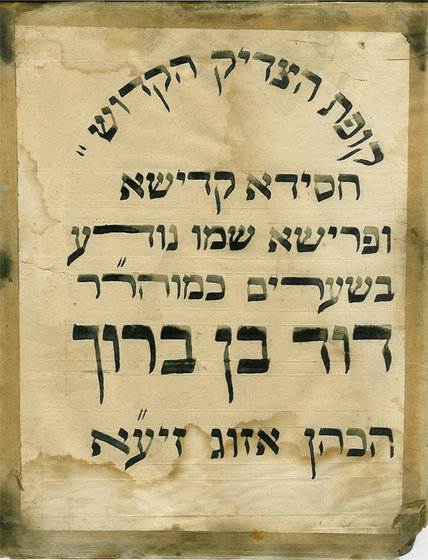 קופת הצדיק הקדוש"
חסידא קדישא
ופרישא שמו נודע
בשערים כמוהר״ר
דוד בן ברוך
הכהן אזוג זיע״א